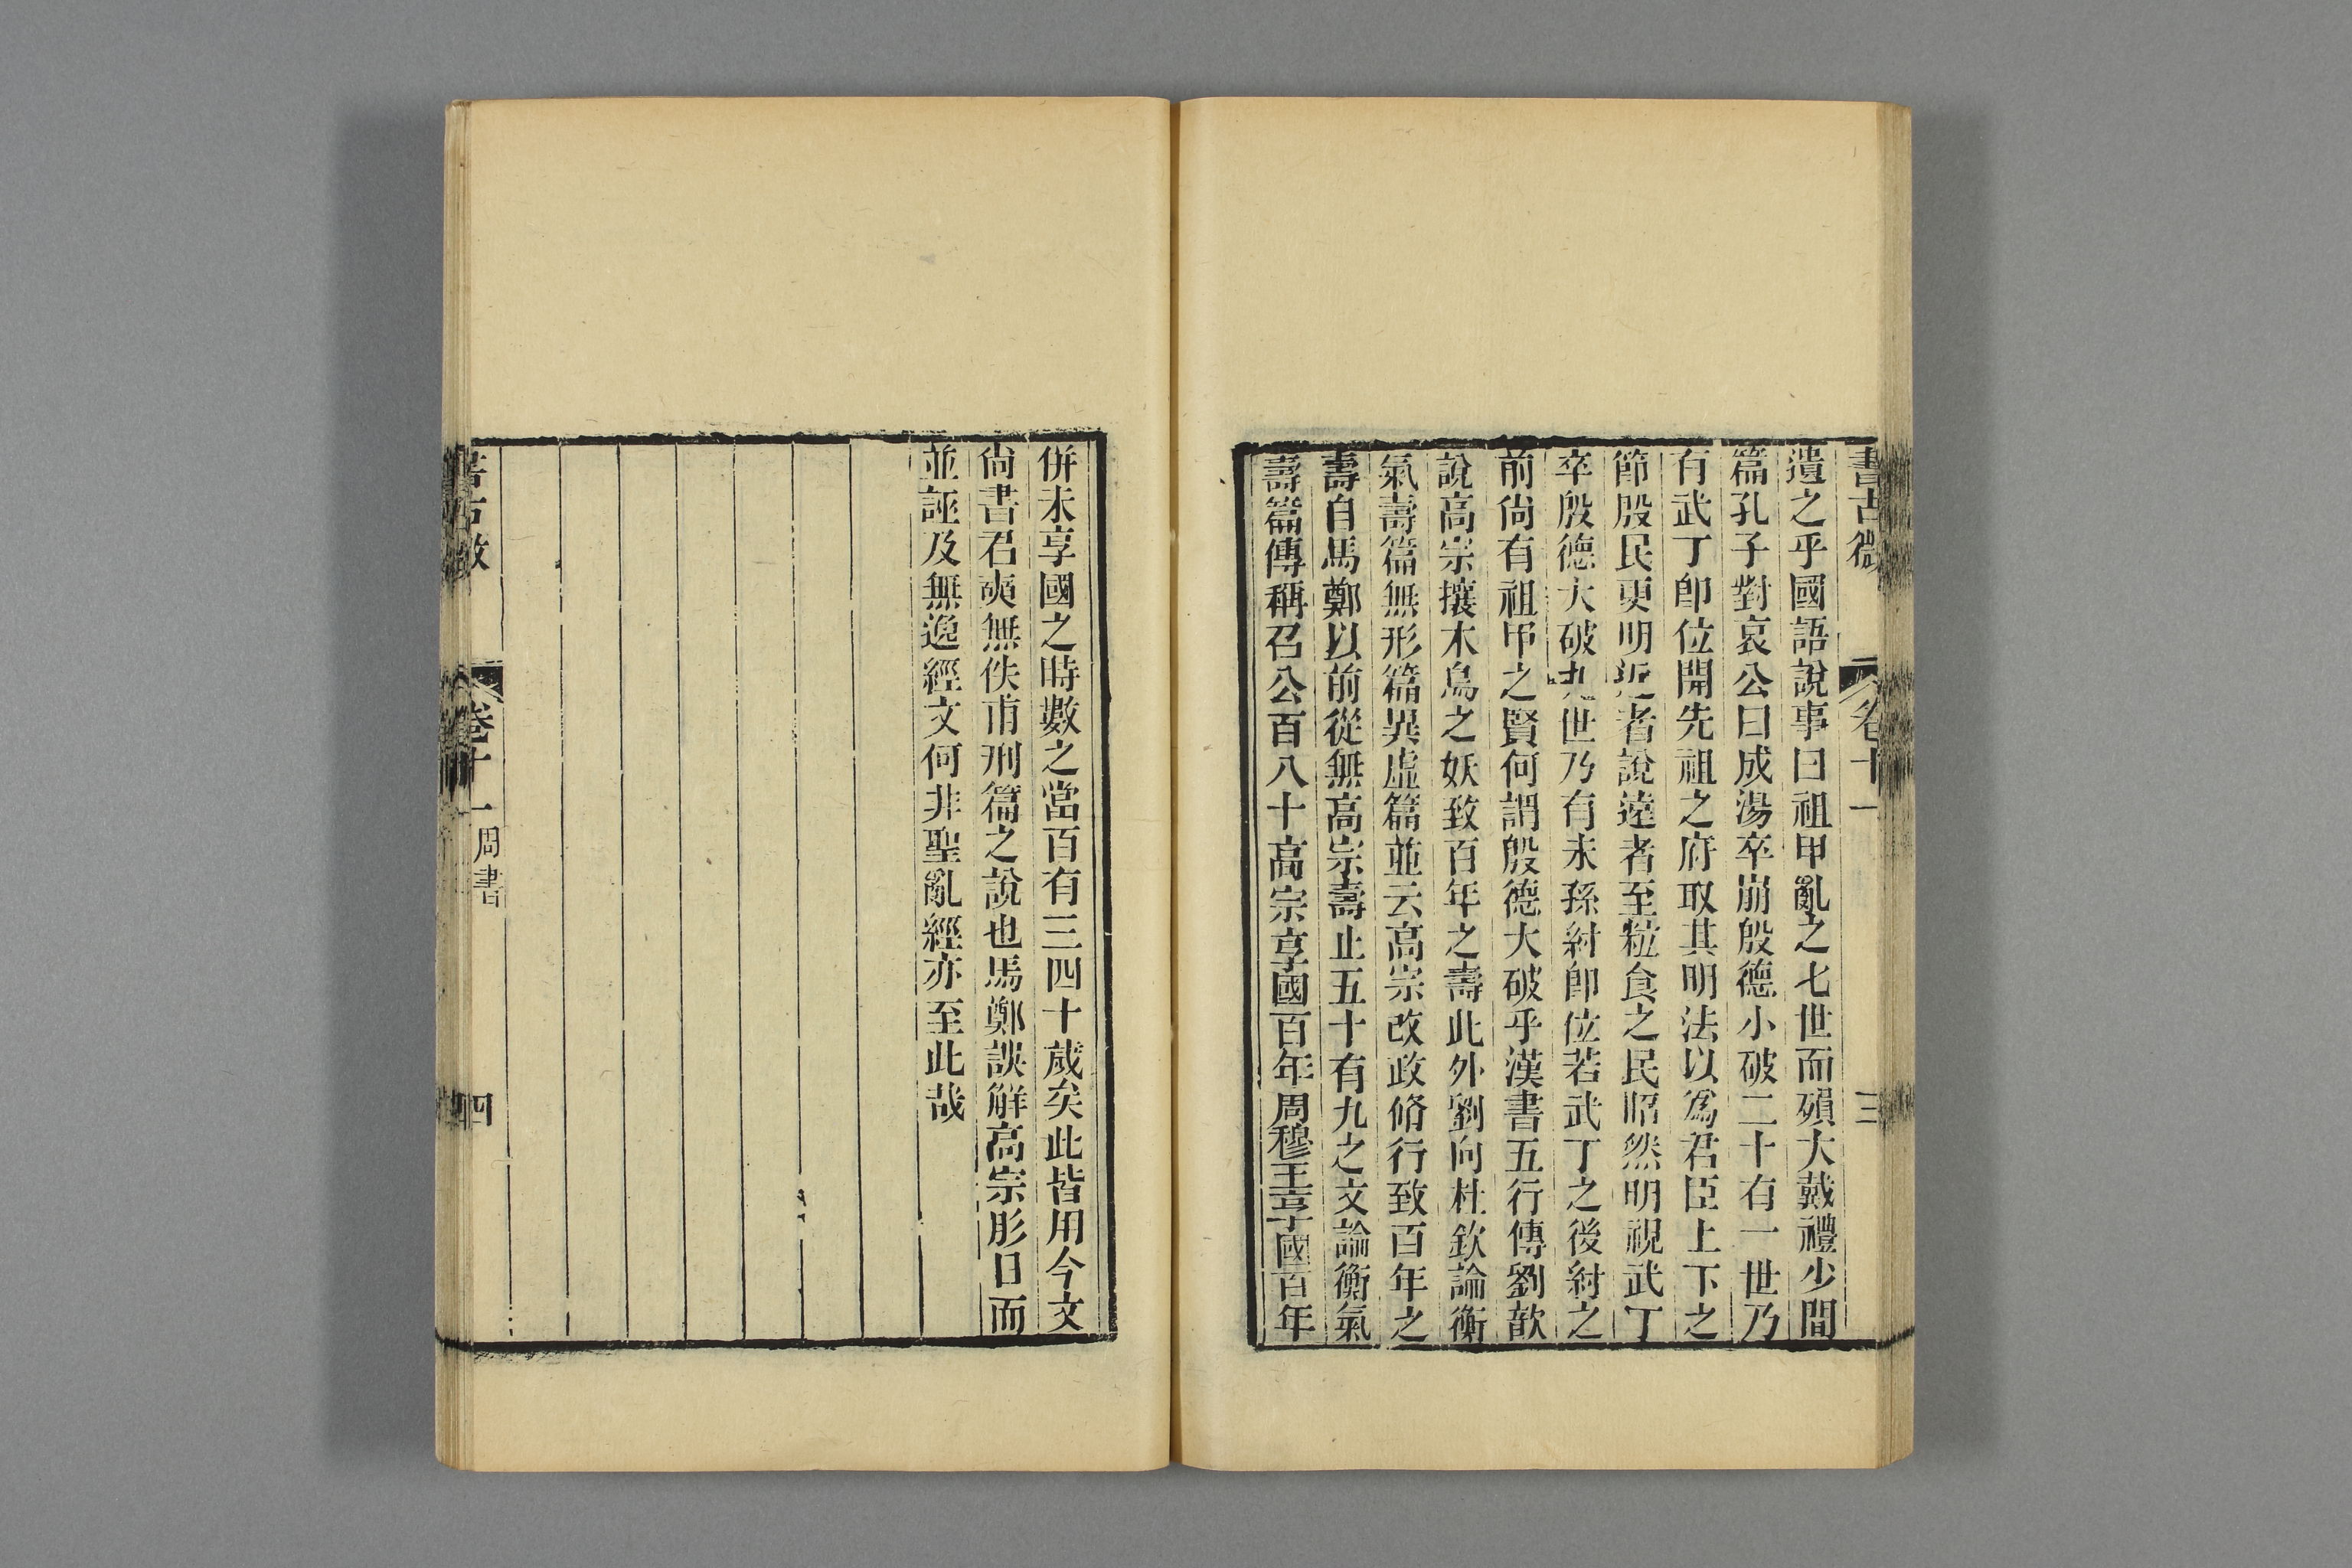 書古微
卷十一
三
遺之乎國語說事曰祖甲亂之七世而殞大戴禮少間
篇孔子對哀公曰成湯卒崩殷德小破二十有一世乃
有武丁卽位開先祖之府取其明法以爲君臣上下之
節殷民更明近者說逺者至粒食之民昭然明視武丁
卒殷德大破九世乃有末孫紂卽位若武丁之後紂之
前尙有祖甲之賢何謂殷德大破乎漢書五行傳劉歆
說高宗攘木鳥之妖致百年之壽此外劉向杜欽論衡
氣壽篇無形篇異虛篇並云高宗改政脩行致百年之
壽自馬鄭以前從無高宗壽止五十有九之文論衡氣
壽篇傳稱召公百八十高宗享國百年周穆王享國百年
併未享國之時數之當百有三四十歲矣此皆用今文
尙書君奭無佚甫刑篇之說也馬鄭誤解高宗肜日而
並誣及無逸經文何非聖亂經亦至此哉
書古微
卷十一
周書
四